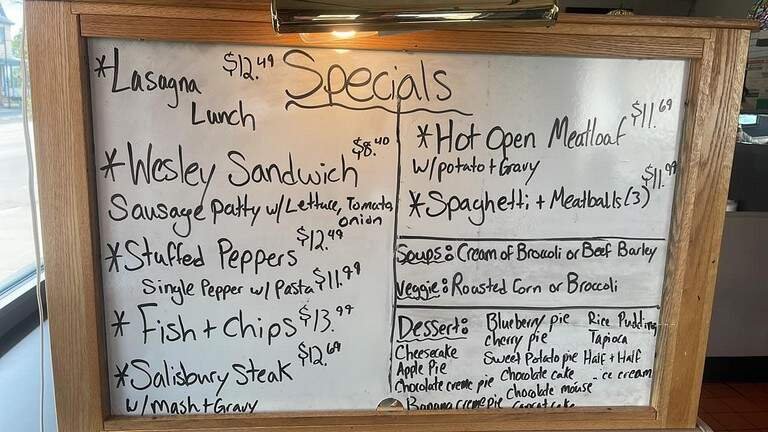 Specials
*Lasagna $12.49
Lunch
*Wesley Sandwich $8.40
Sausage Patty w/Lettuce, Tomato,
onion
*Stuffed Peppers $12.49
Single Pepper w/ Pasta $11.49
* Fish + Chips $13.99
*Salisbury Steak $12.69
w/mash+Gravy
*Hot Open Meatloaf $11.69
w/potato+Gravy
*Spaghetti + Meatballs (3) $11.99
Soups: Cream of Broccoli or Beef Barley
Veggie: Roasted Corn or Broccoli
Dessert:
Cheesecake
Apple Pie
Chocolate creme pie
Banana creme pie
Blueberry pie
cherry pie
Sweet Potato pie
Chocolate cake
Chocolate mouse
Carrot cake
Rice Pudding
Tapioca
Half + Half
- ice cream